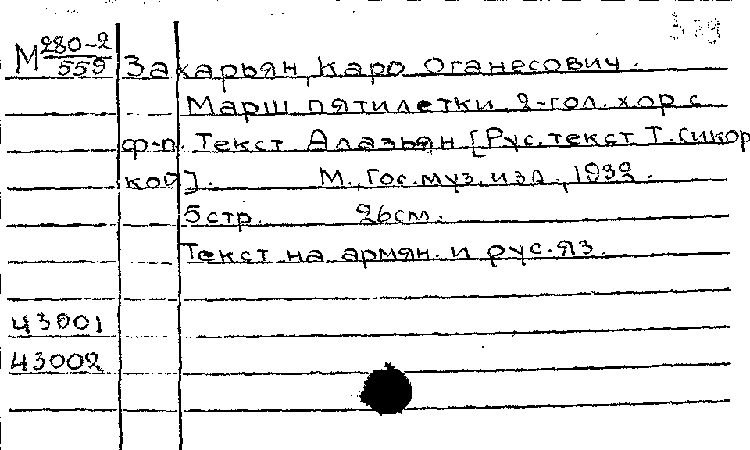 М 280-2
559 Захарьян, Каро Оганесович.
Марш пятилетки 2-гол. хор с
ф-п. Текст Алазьян [Рус. текст Т. Сикор
кой]. М., Гос. муз. изд., 1932.
5 стр. 26 см.
Текст на армян. и рус. яз.
43001
43002